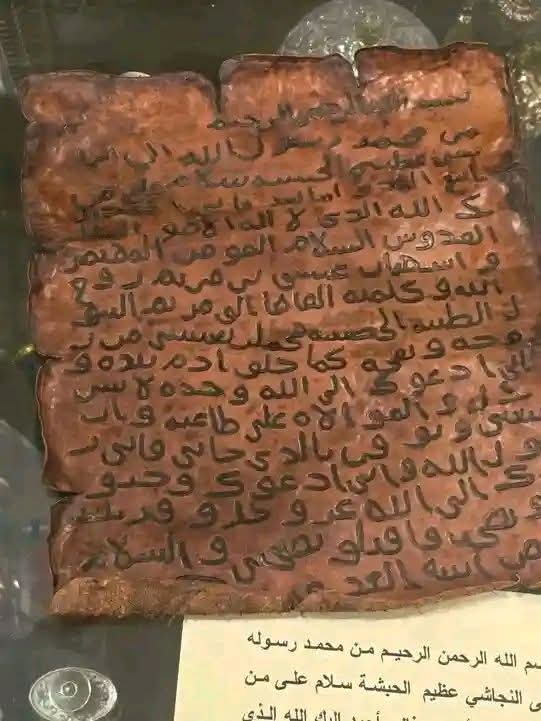 بسم الله الرحمن الرحيم
من محمد رسول الله الى النجا
شي عظيم الحبسه سلام على من
اتبع الهدى اما بعد فاني احمد الي
ك الله الدى لا اله الا هو الملك
القدوس السلام المومن المهيمن
و اسهد ان عيسى بن مريم روح
الله و كلمته القاها الى مريم البتو
ل الطيبه الحصينه فحملت بعيسى من ر
وحه و نفخه كما خلق ادم بيده و
اني ادعوك الى الله وحده لا سر
يك له و الموالاه على طاعته و ان
تتبعني و توقن بالذي جاني فاني ر
سول الله واني ادعوك وجنو
دك الى الله عز و جل و قد بلغت
و نصحت فاقبلو نصيحتي و السلام
من اتبع الهدى
سم الله الرحمن الرحيم من محمد رسوله
ى النجاشي عظيم الحبشة سلام على من
أحمد إليك الله الذي